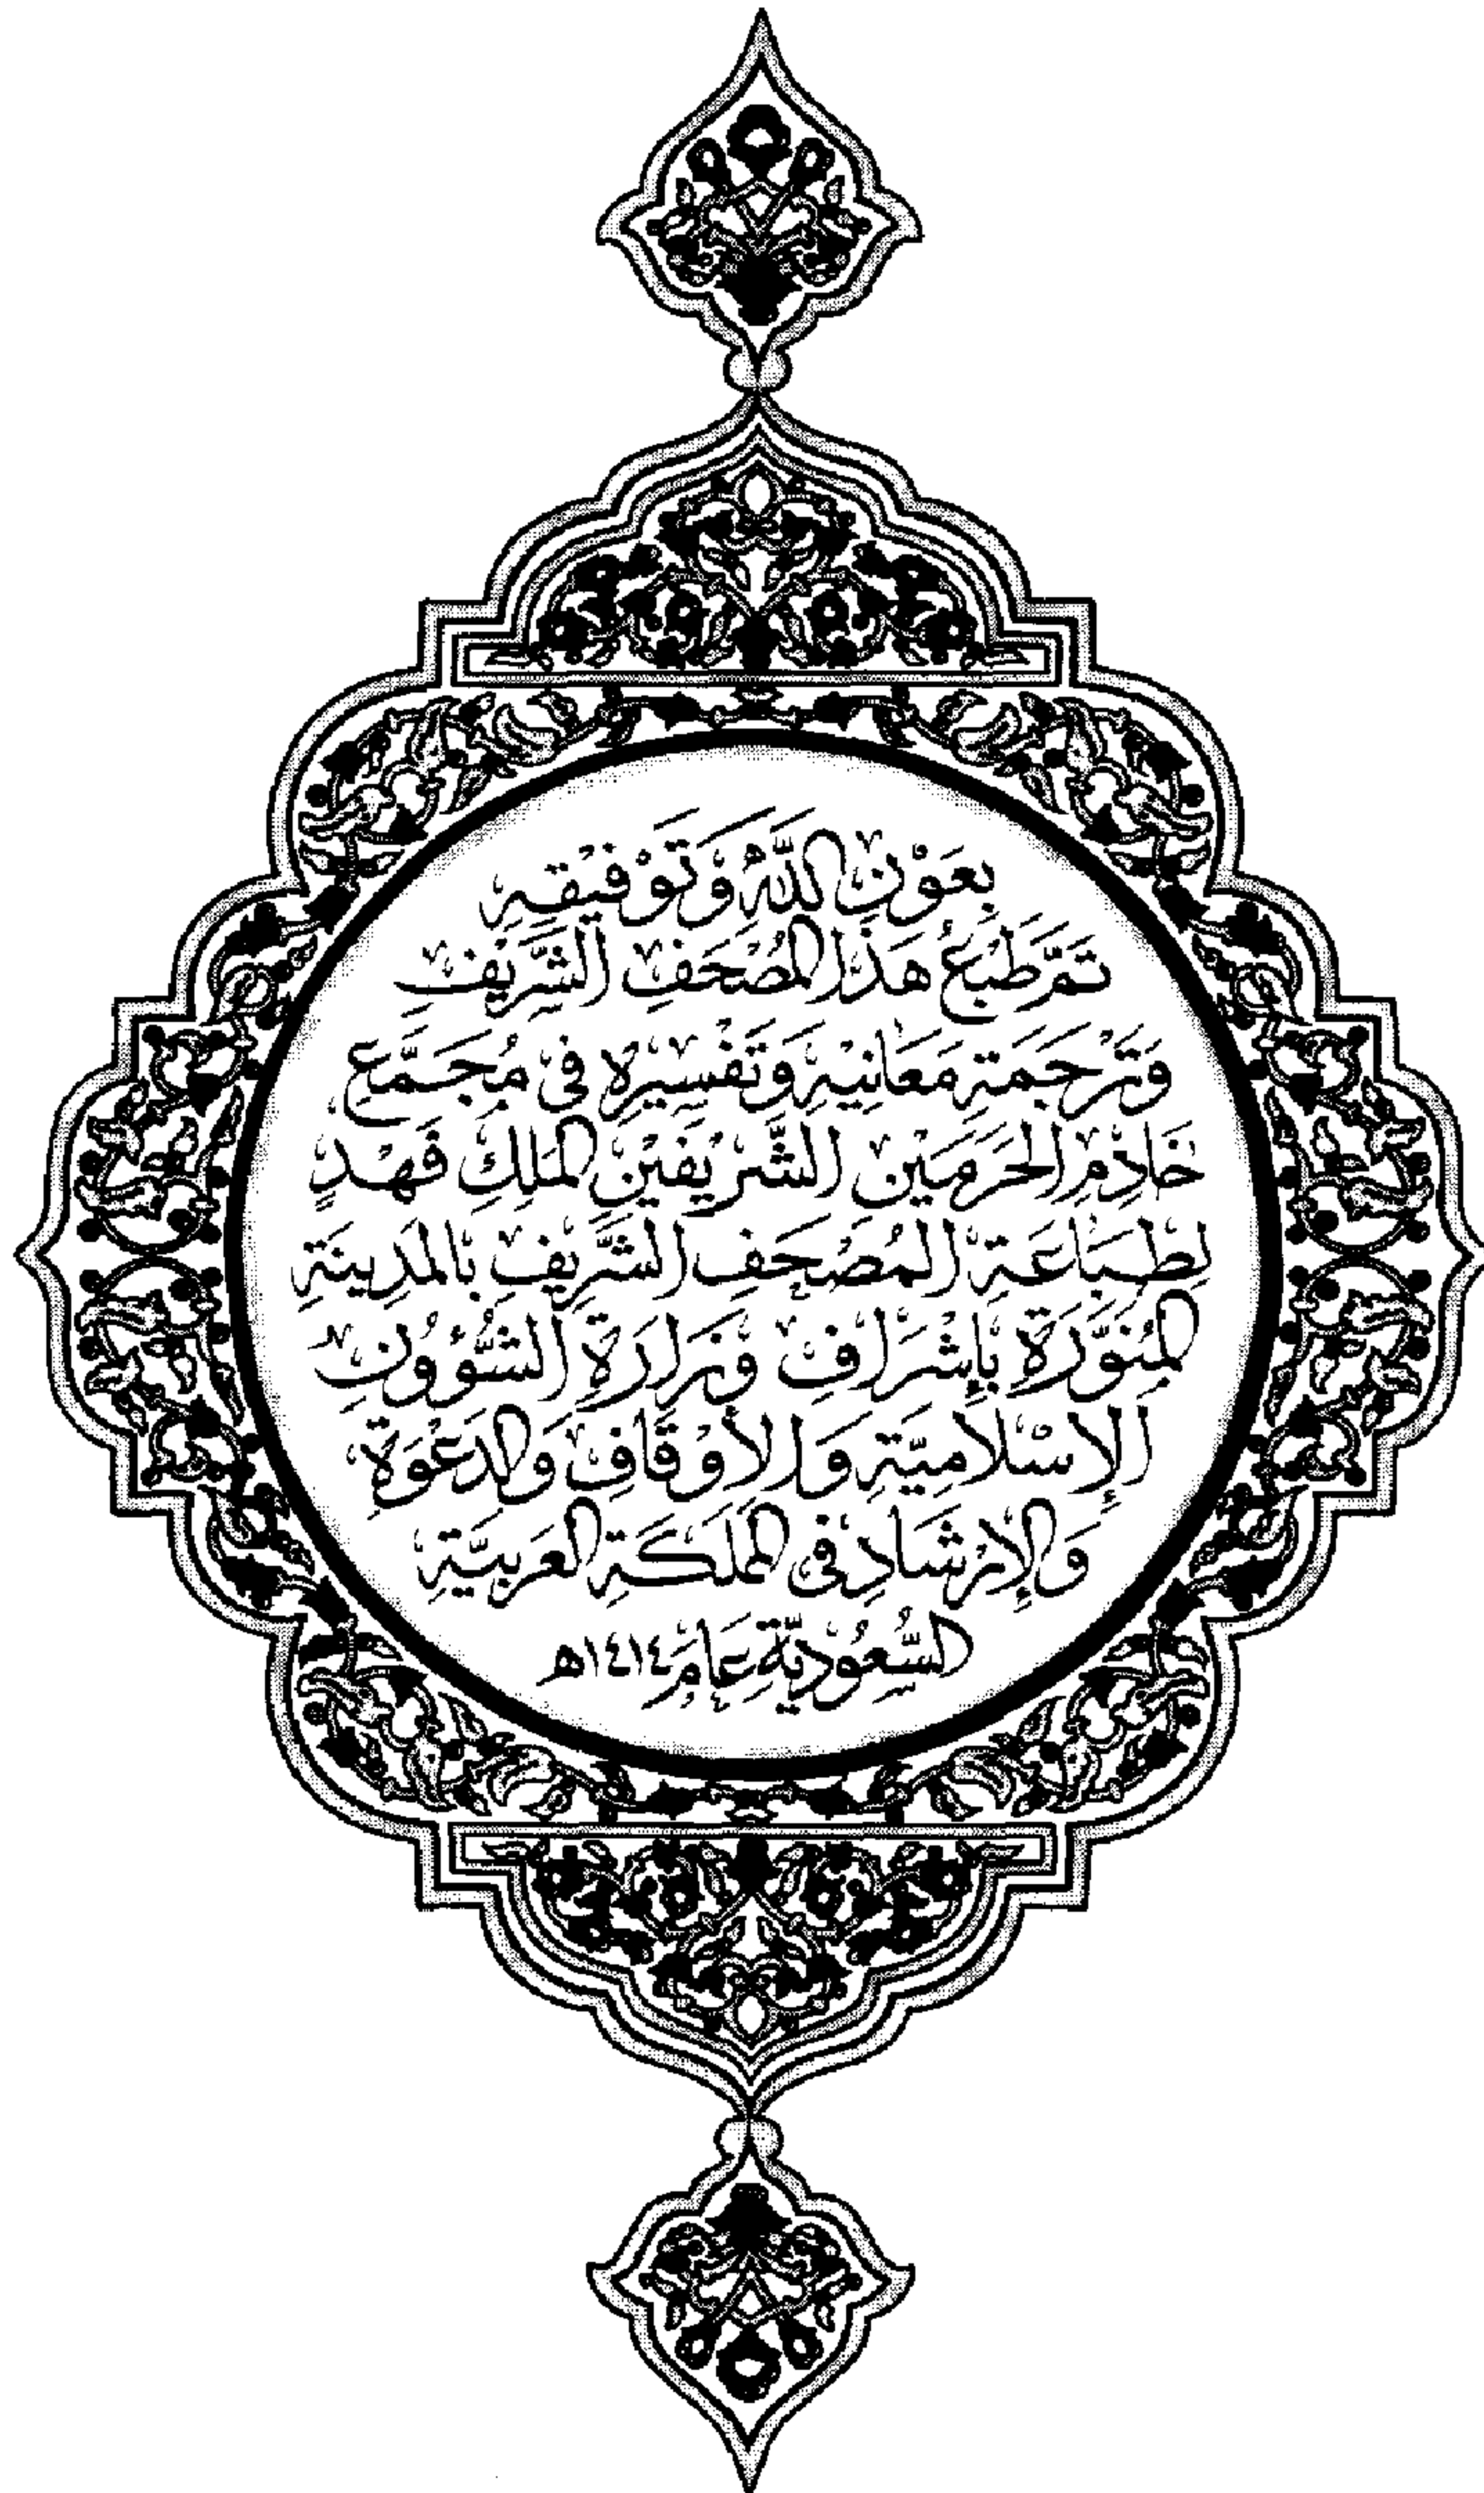 بِعَوْنِ اللَّهِ وَتَوْفِيقِهِ
تَمَّ طَبْعُ هَذَا الْمُصْحَفِ الشَّرِيفِ
وَتَرْجَمَةِ مَعَانِيهِ وَتَفْسِيرِهِ فِي مُجَمَّعِ
خَادِمِ الْحَرَمَيْنِ الشَّرِيفَيْنِ الْمَلِكِ فَهْدٍ
لِطِبَاعَةِ الْمُصْحَفِ الشَّرِيفِ بِالْمَدِينَةِ
الْمُنَوَّرَةِ بِإِشْرَافِ وَزَارَةِ الشُّؤُونِ
الْإِسْلَامِيَّةِ وَالْأَوْقَافِ وَالدَّعْوَةِ
وَالْإِرْشَادِ فِي الْمَمْلَكَةِ الْعَرَبِيَّةِ
السُّعُودِيَّةِ عَامَ ١٤١٤هـ